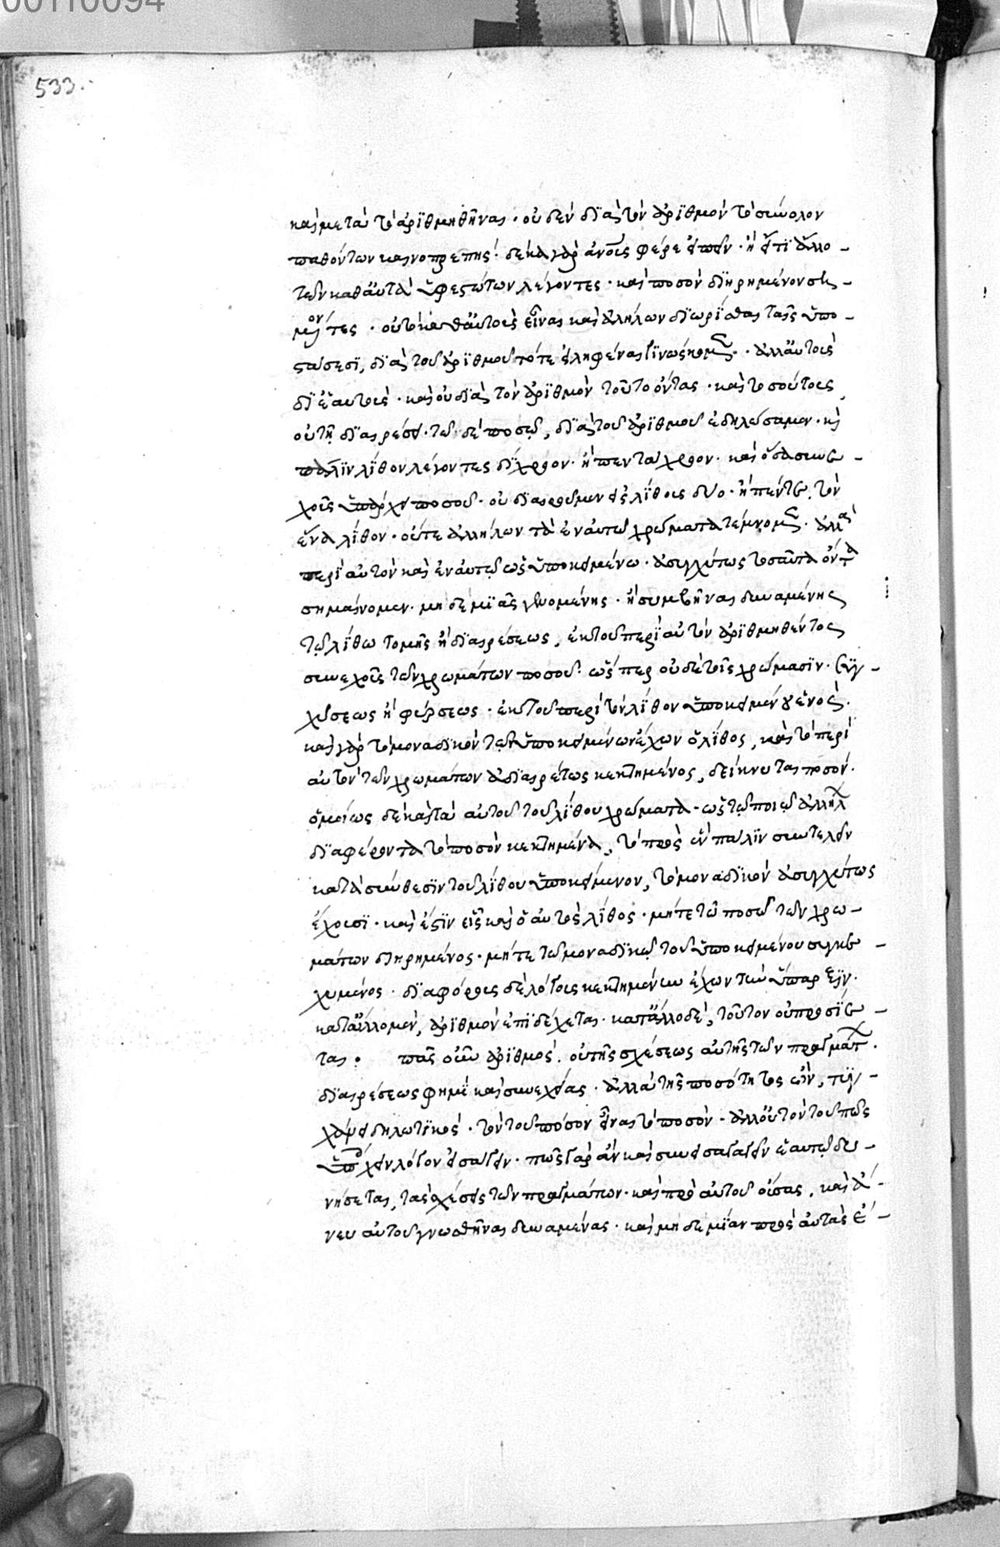 00110094
533.
καὶ μετὰ τὸ ἀριθμηθῆναι · οὐδὲν διὰ τὸν ἀριθμὸν τὸ σύνολον
παθόντων καινοπρεπής · δέκα γὰρ ἀνους φέρε εἰπεῖν · ἢ ἔτι ἄλλο –
τῶν καθ' αὑτὰ ὑφεστώτων λέγοντες · καὶ ποσὸν διῃρημένον ση –
μαίνοντες · οὐ τὸ καθ' αὑτοὺς εἶναι καὶ ἀλλήλων διωρίσθαι ταῖς ὑπο –
στάσεσι, διὰ τοῦ ἀριθμοῦ τότε εἰληφέναι γινώσκομεν · ἀλλ' αὐτοὺς
δι' ἑαυτοὺς · καὶ οὐ διὰ τὸν ἀριθμὸν τοῦτο ὄντας · καὶ τοσούτους
οὐ τῇ διαιρέσει · τῷ δὲ ποσῷ, διὰ τοῦ ἀριθμοῦ ἐδηλώσαμεν · καὶ
πάλιν λίθον λέγοντες δίχροον · ἢ πεντάχροον · καὶ ὅσα συνε –
χοῦς ὑπάρχει ποσοῦ · οὐ διαιροῦμεν εἰς λίθους δύο · ἢ πέντε, τὸν
ἕνα λίθον · οὔτε ἀλλήλων τὰ ἐν αὐτῷ χρώματα τέμνομεν · ἀλλὰ
περὶ αὐτὸν καὶ ἐν αὐτῷ ὡς ὑποκειμένῳ · ἀσυγχύτως τοσαῦτα ὄντα
σημαίνομεν · μηδεμιᾶς γινομένης · ἢ συμβῆναι δυναμένης
τῷ λίθῳ τομῆς ἢ διαιρέσεως, ἐκ τοῦ περὶ αὐτὸν ἀριθμηθέντος
συνεχοῦς τῶν χρωμάτων ποσοῦ · ὥσπερ οὐδὲ τοῖς χρώμασιν · συγ –
χύσεως ἢ φύρσεως · ἐκ τοῦ περὶ τὸν λίθον ὑποκειμένου ἑνός ·
καὶ γὰρ τὸ μοναδικὸν τῷ ὑποκειμένῳ ἔχων ὁ λίθος, καὶ τὸ περὶ
αὐτὸν τῶν χρωμάτων ἀδιαιρέτως κεκτημένος, δείκνυται ποσόν ·
ὁμοίως δὲ καὶ τὰ αὐτοῦ τοῦ λίθου χρώματα · ὡς τῷ ποιῷ ἀλλήλων
διαφέροντα τὸ ποσὸν κεκτημένα, τὸ πρὸς ἓν πάλιν συντελεῖν
κατὰ σύνθεσιν τοῦ λίθου ὑποκείμενον, τὸ μοναδικὸν ἀσυγχύτως
ἔχουσι · καὶ ἔστιν εἷς καὶ ὁ αὐτὸς λίθος · μήτε τῷ ποσῷ τῶν χρω –
μάτων διῃρημένος · μήτε τῷ μοναδικῷ τοῦ ὑποκειμένου συγκε –
χυμένος · διαφόροις δὲ λόγοις κεκτημένων ἔχων τὴν ὕπαρξιν ·
κατ' ἄλλο μὲν, ἀριθμὸν ἐπιδέχεται · κατ' ἄλλο δὲ, τοῦτον οὐ προσίε –
ται · πᾶς οὖν ἀριθμὸς · οὐ τῆς σχέσεως αὐτῆς τῶν πραγμάτων ·
διαιρέσεως φημὶ καὶ συνεχείας · ἀλλὰ τῆς ποσότητος ὢν,
δηλωτικὸς · τὸν τοῦ πόσον εἶναι τὸ ποσὸν · ἀλλ' οὐ τὸν τοῦ πῶς
ὑπάρχειν λόγον εἰσάγειν · πῶς γὰρ ἂν καὶ συνεισαγαγεῖν ἑαυτῷ δυ –
νήσεται, τὰς σχέσεις τῶν πραγμάτων · καὶ πρὸ αὐτοῦ οὔσας, καὶ ἄ –
νευ αὐτοῦ γνωσθῆναι δυναμένας · καὶ μηδεμίαν πρὸς αὐτὰς ἐ –